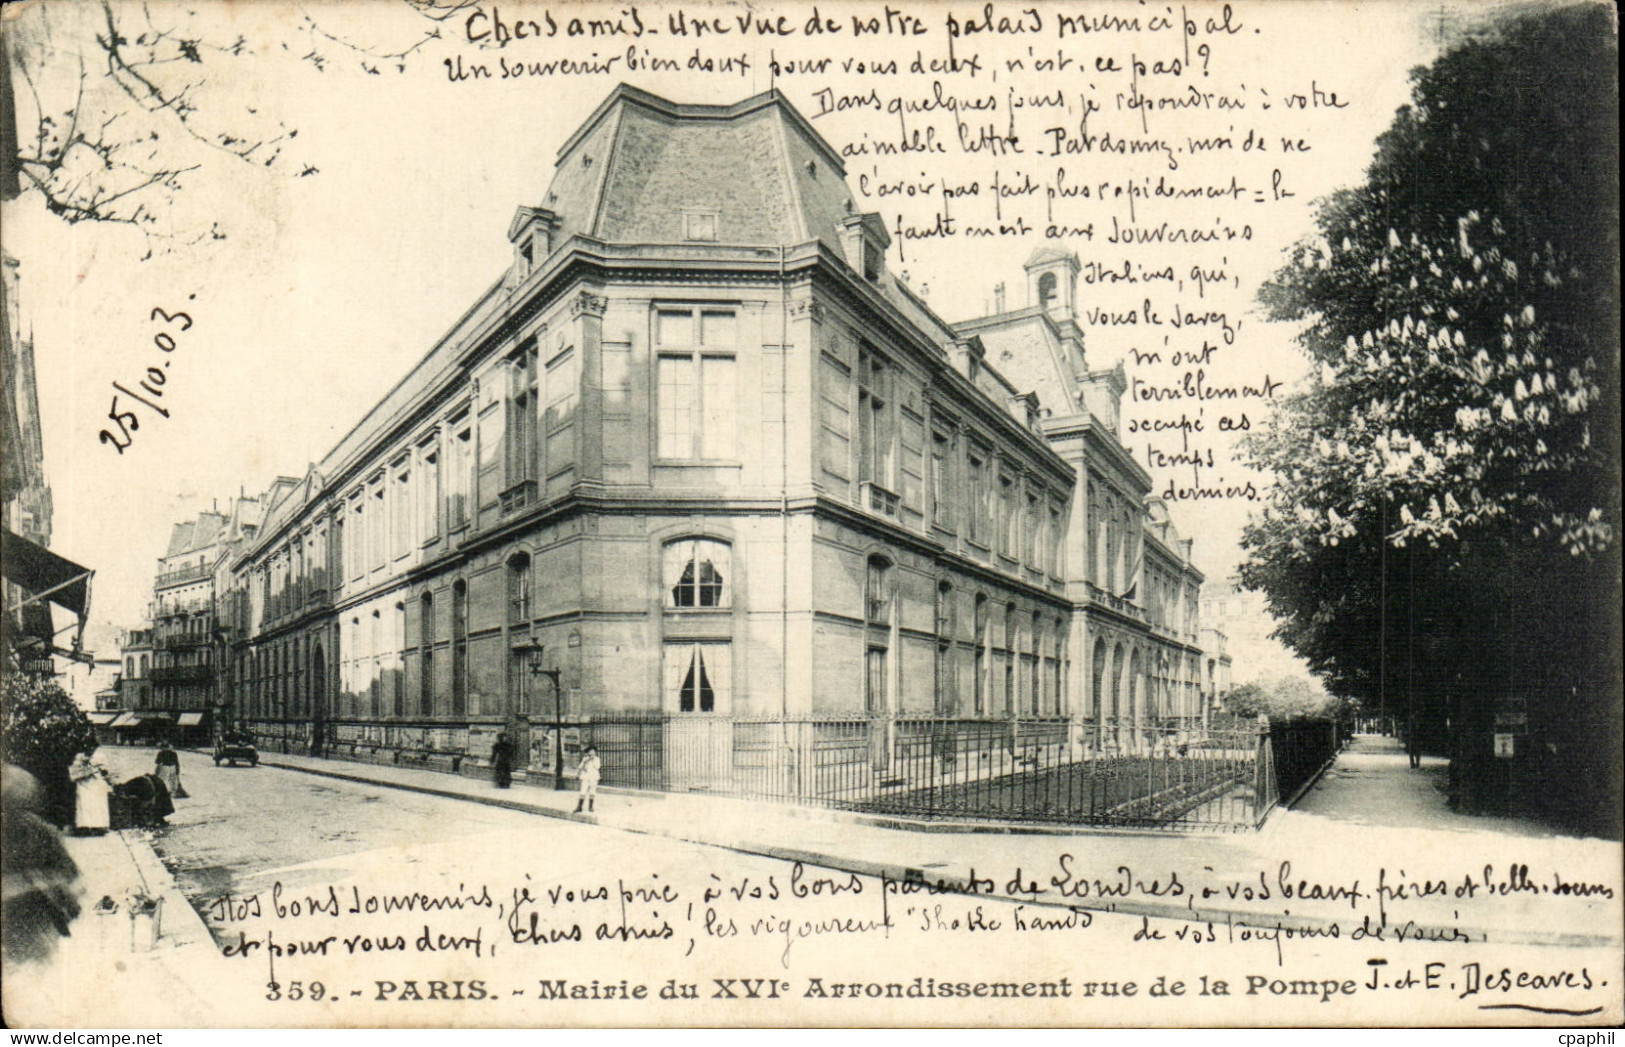 Chers amis - Une vue de notre palais municipal.
Un souvenir bien doux pour vous deux, n'est-ce pas ?
Dans quelques jours, je répondrai à votre
aimable lettre - Pardonnez-moi de ne
l'avoir pas fait plus rapidement = la
faute en est aux Souverains
Italiens, qui,
vous le savez,
m'ont
terriblement
occupé ces
temps
derniers.
25/10.03.
COIFFEUR
Nos bons souvenirs, je vous prie, à vos bons parents de Londres, à vos beaux-frères et belles-sœurs
et pour vous deux, chers amis, les vigoureux "Shake hands" de vos toujours dévoués.
359. - PARIS. - Mairie du XVIe Arrondissement rue de la Pompe
J. et E. Descaves.
© cpaphil